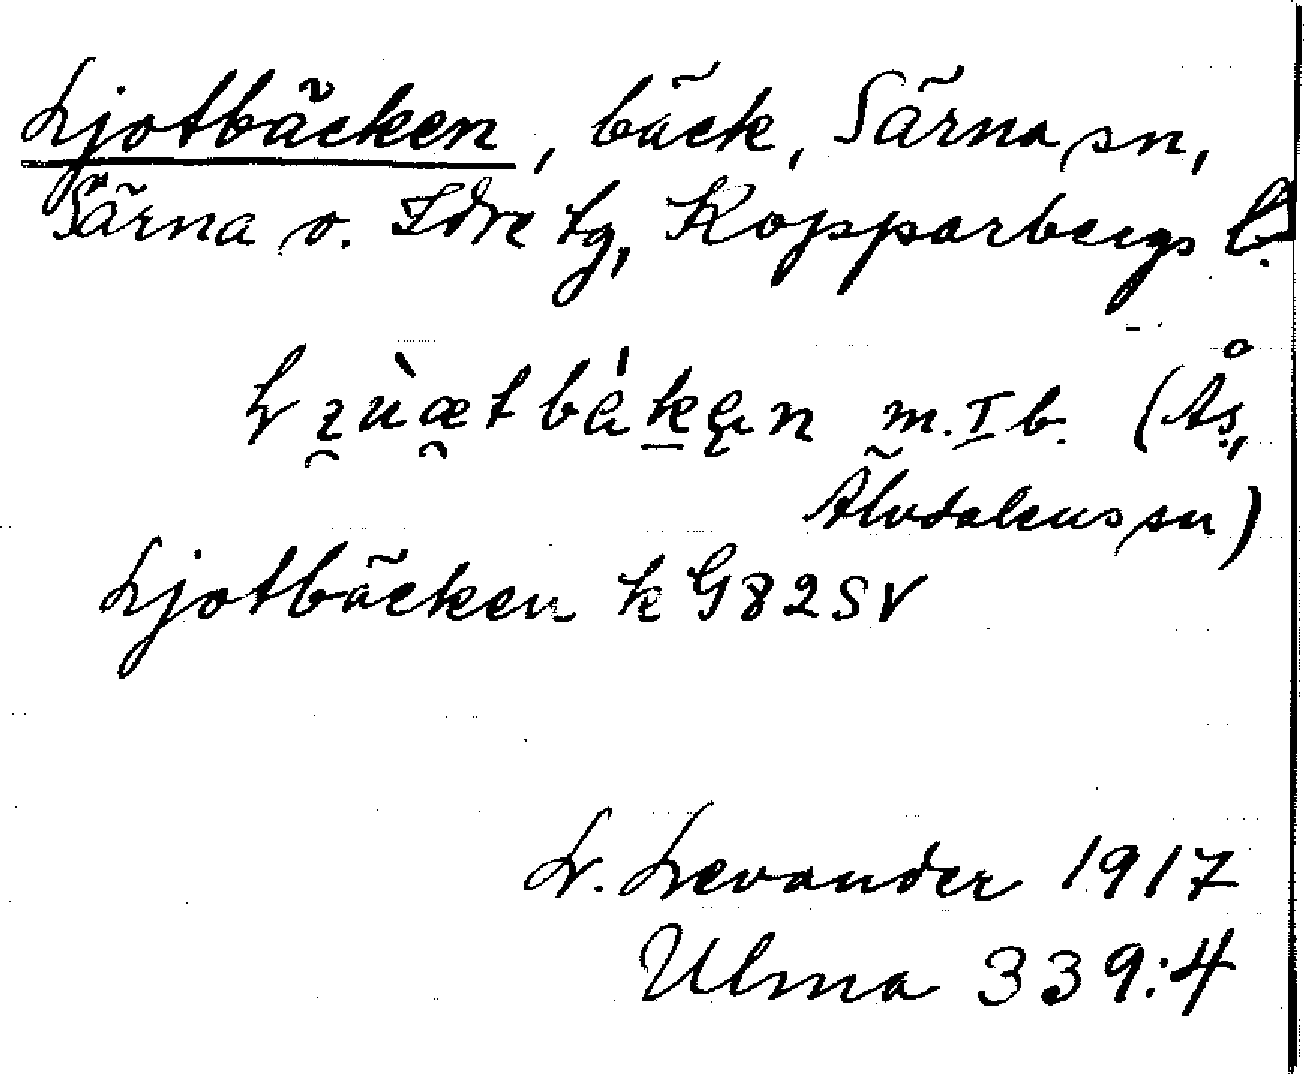 Ljotbäcken, bäck, Särna sn,
Särna o. Idre tg, Kopparbergs l.
m. I b. (Ås,
Älvdalens sn)
Ljotbäcken k G82SV
L. Levander 1917
Ulma 339:4